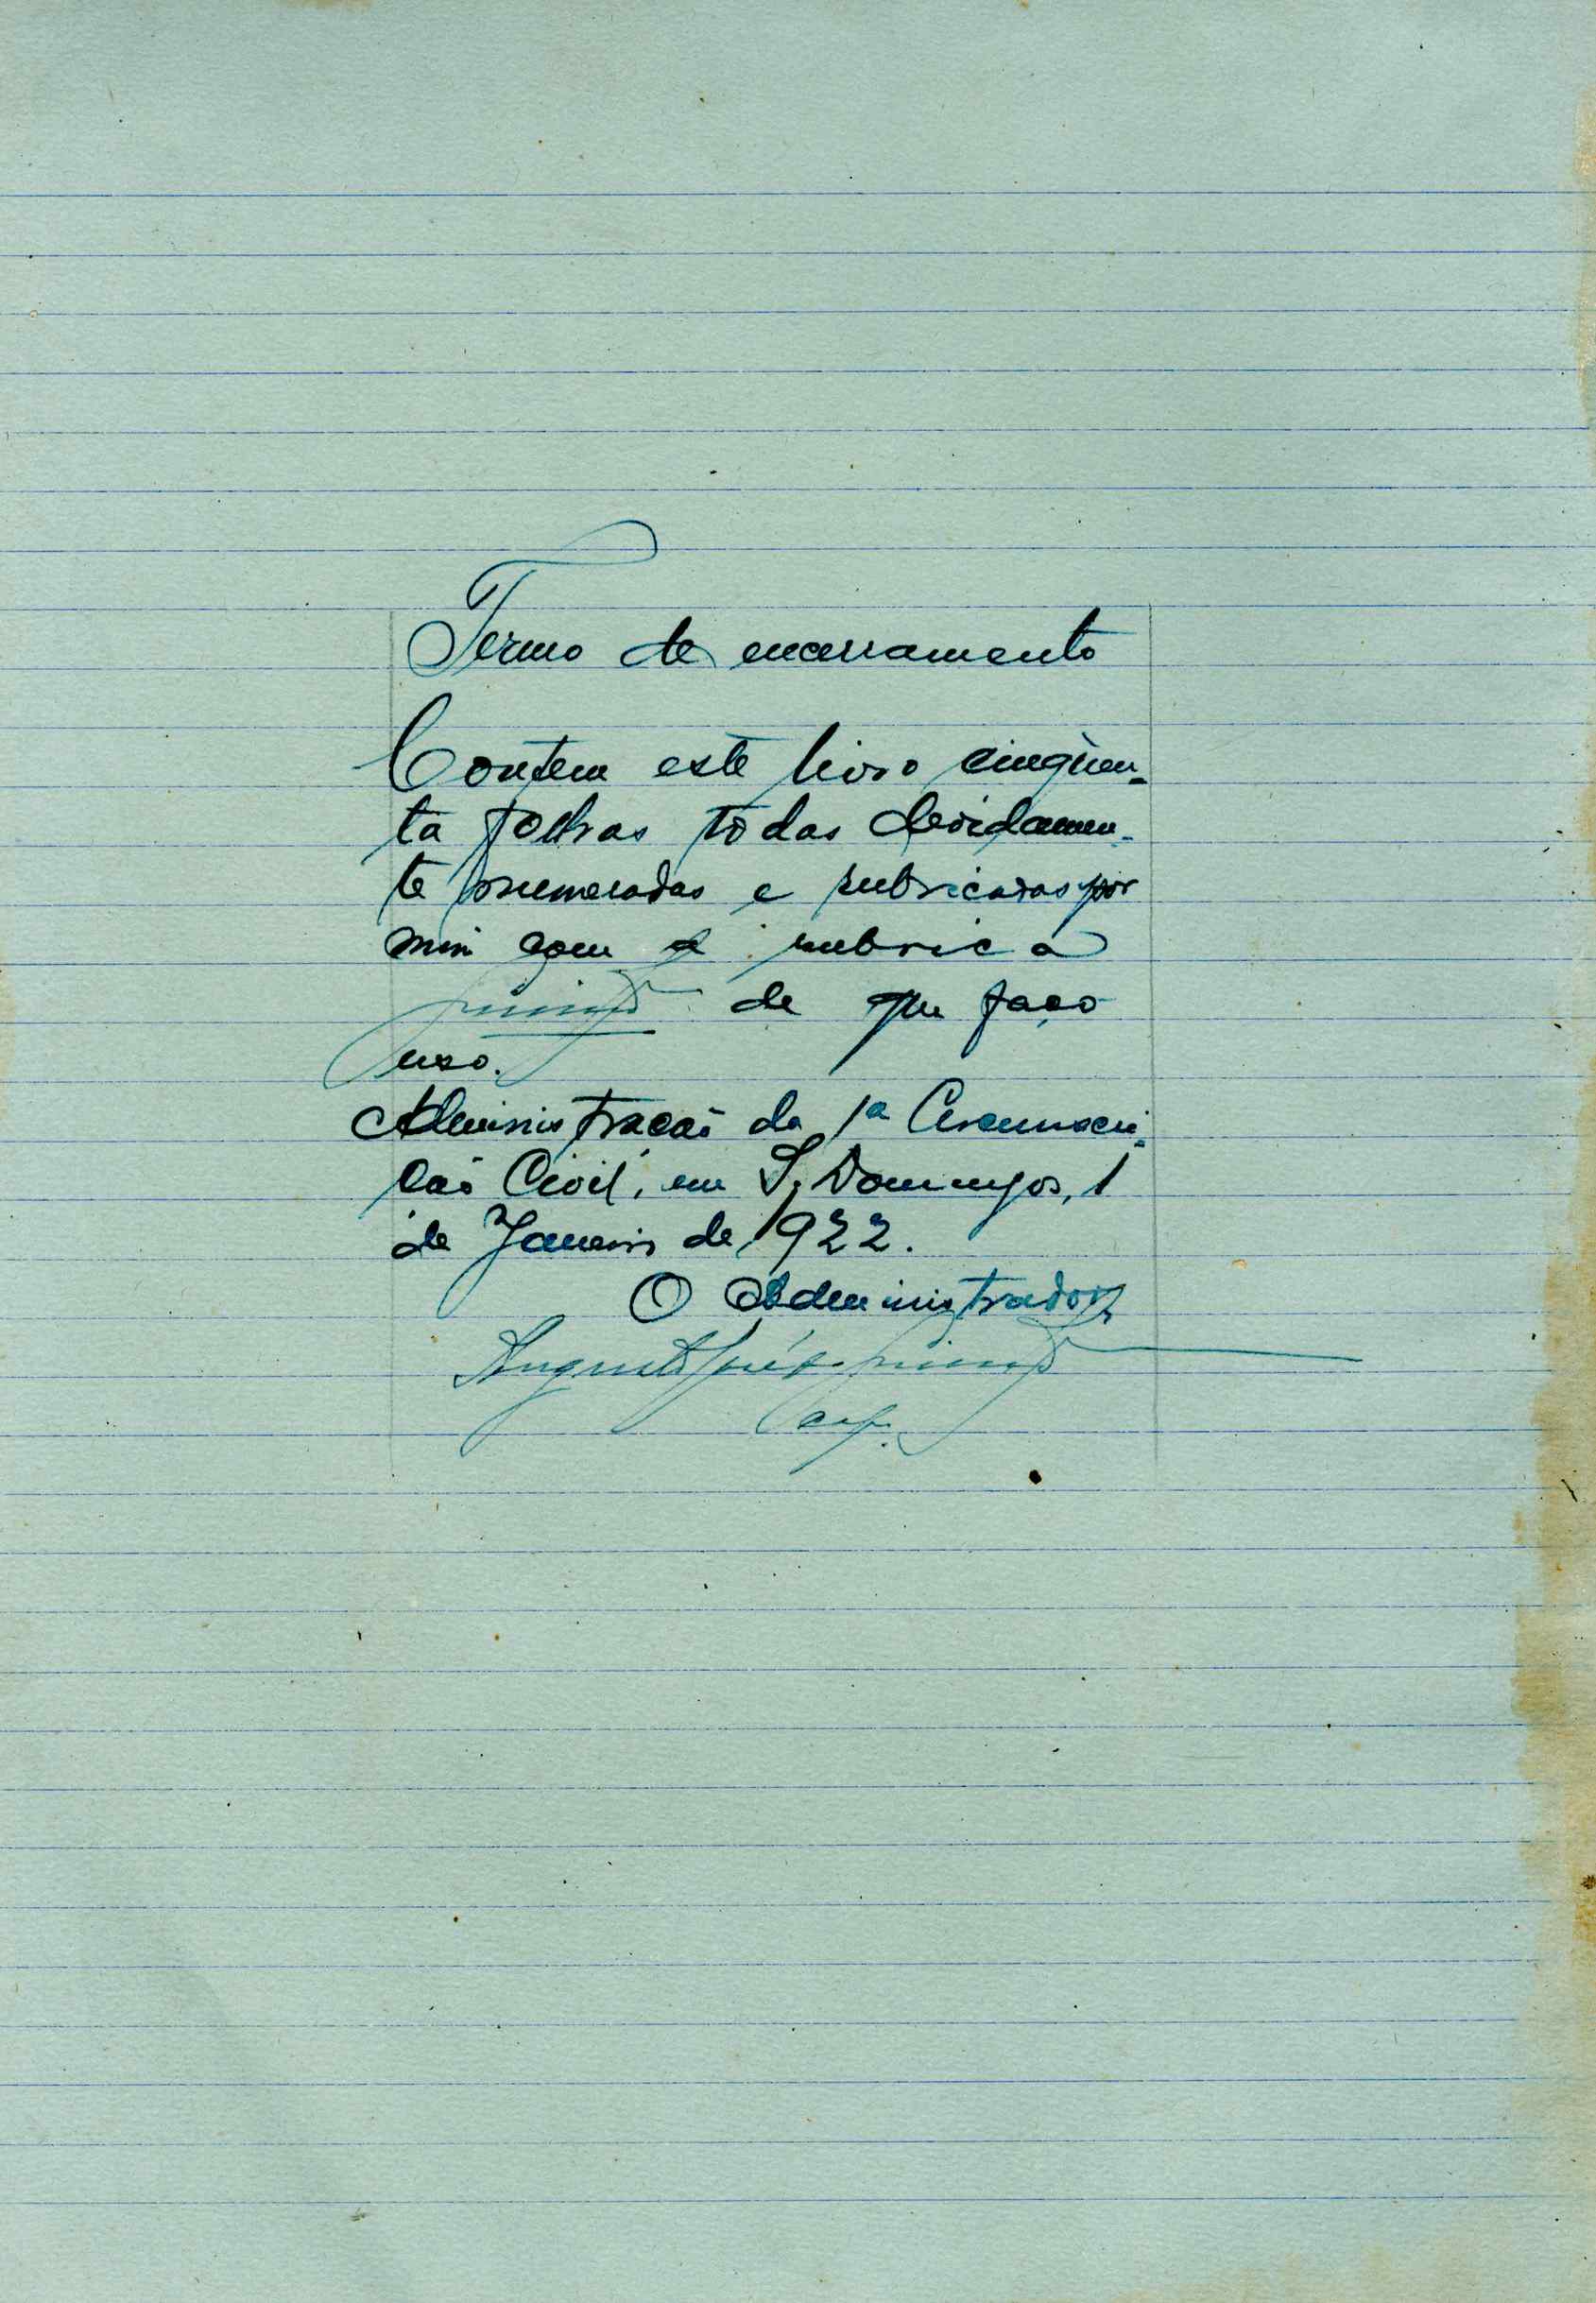 Termo de encerramento
Contem este livro cinqùen-
ta folhas todas devidamen-
te numeradas e rubricadas por
mim com a rubrica
de que faço
uso.
Administração da 1ª Circunscri-
ção Civil, em S. Domingos, 1
de Janeiro de 1922.
O Administrador
Augusto José
Cap.